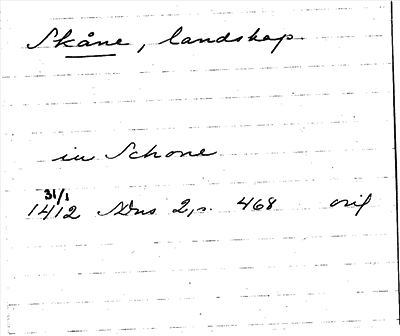 Skåne, landskap.
in Schone
31/1
1412 SDns 2, s. 468 orig